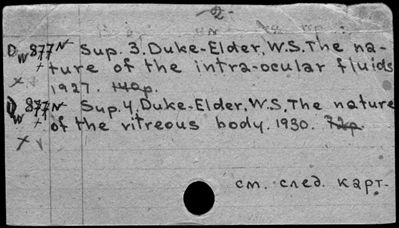 -2-
D 877N Sup. 3. Duke-Elder, W.S. The na-
W ture of the intra-ocular fluids
1927. 140p.
D 877N Sup. 4. Duke-Elder, W.S. The nature
W of the vitreous body. 1930. 72p.
см. след. карт.